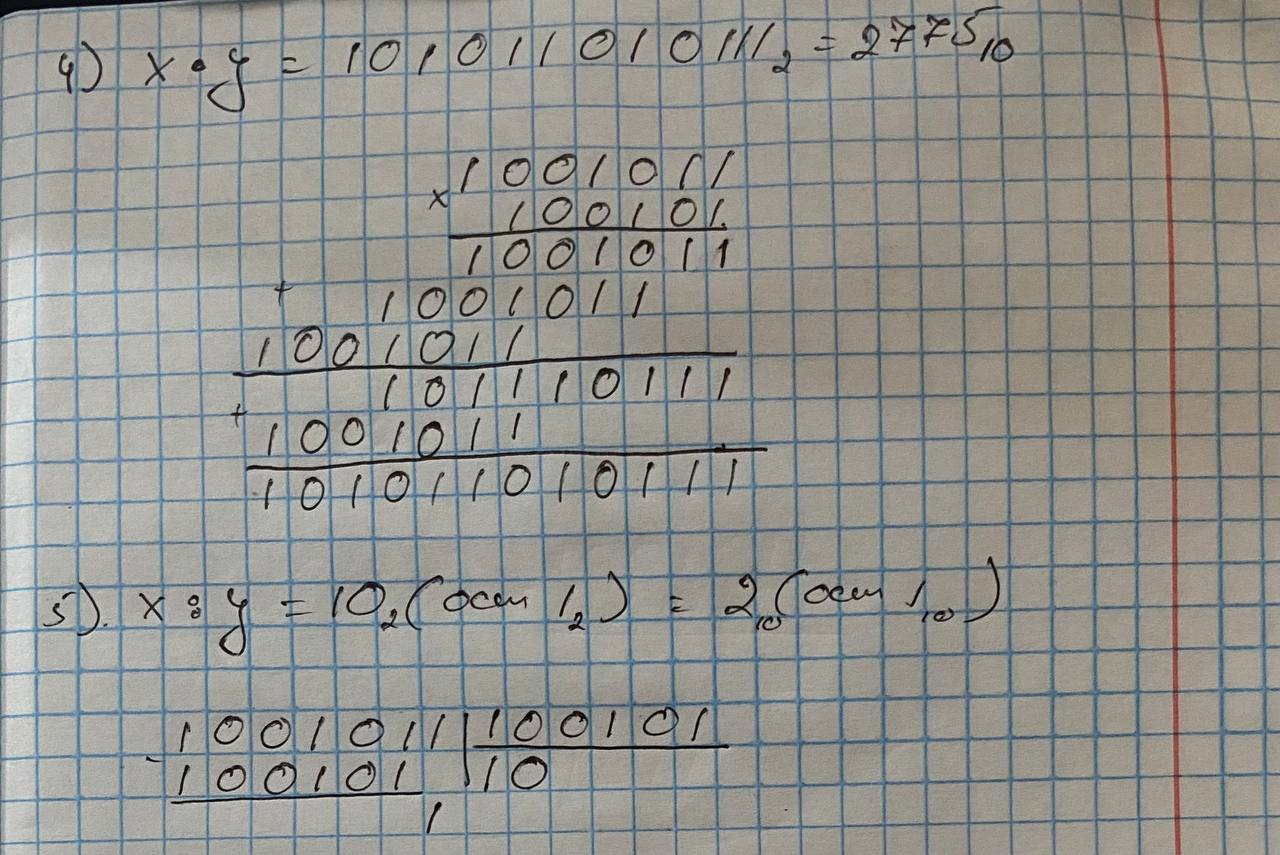 4) x • y = 101011010111₂ = 2775₁₀
× 1001011
100101
1001011
+ 1001011
1001011
101110111
+ 1001011
101011010111
5). x : y = 10₂ (ост 1₂) = 2₁₀ (ост 1₁₀)
1001011 | 100101
- 100101 | 10
1